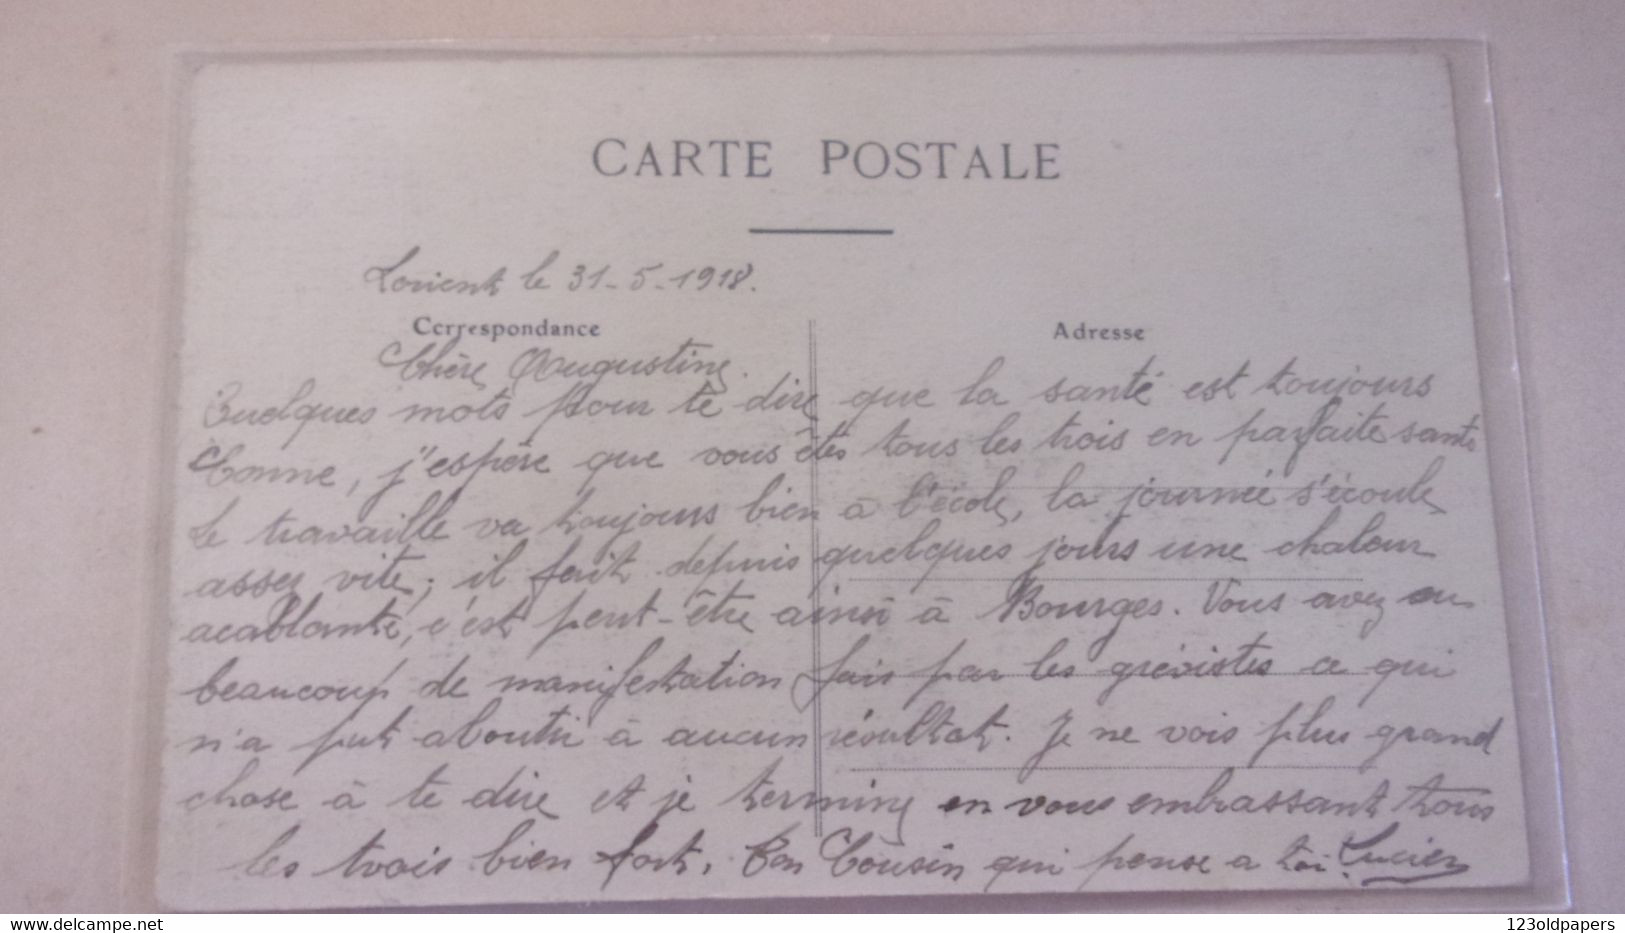 CARTE POSTALE
Lorient le 31-5-1918.
Correspondance
Adresse
Chère Augustine.
Quelques mots pour te dire que la santé est toujours
bonne, j'espère que vous êtes tous les trois en parfaite santé
Le travaille va toujours bien à l'école, la journée s'écoule
assez vite; il fait depuis quelques jours une chaleur
acablante, c'est peut-être ainsi à Bourges. Vous avez eu
beaucoup de manifestation fais par les grévistes ce qui
n'a put aboutir à aucun résultat. Je ne vois plus grand
chose à te dire et je termine en vous embrassant tous
les trois bien fort. Ton Cousin qui pense a toi Lucien
www.delcampe.net
123oldpapers